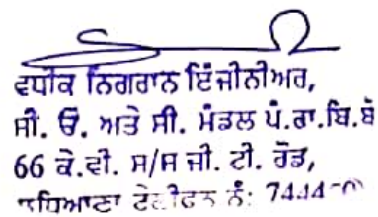 ਵਧੀਕ ਨਿਗਰਾਨ ਇੰਜੀਨੀਅਰ,
ਸੀ. ਓ. ਅਤੇ ਸੀ. ਮੰਡਲ ਪੰ.ਰਾ.ਬਿ.ਬੋ
66 ਕੇ.ਵੀ. ਸ/ਸ ਜੀ. ਟੀ. ਰੋਡ,
ਟੇਲੀਫੂਨ ਨੰ: